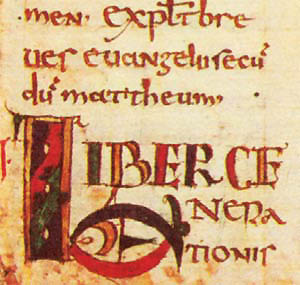 men. explt bre
ues euangelii secu̅
du̅ mattheum.
LIBER GE
NERA
TIONIS